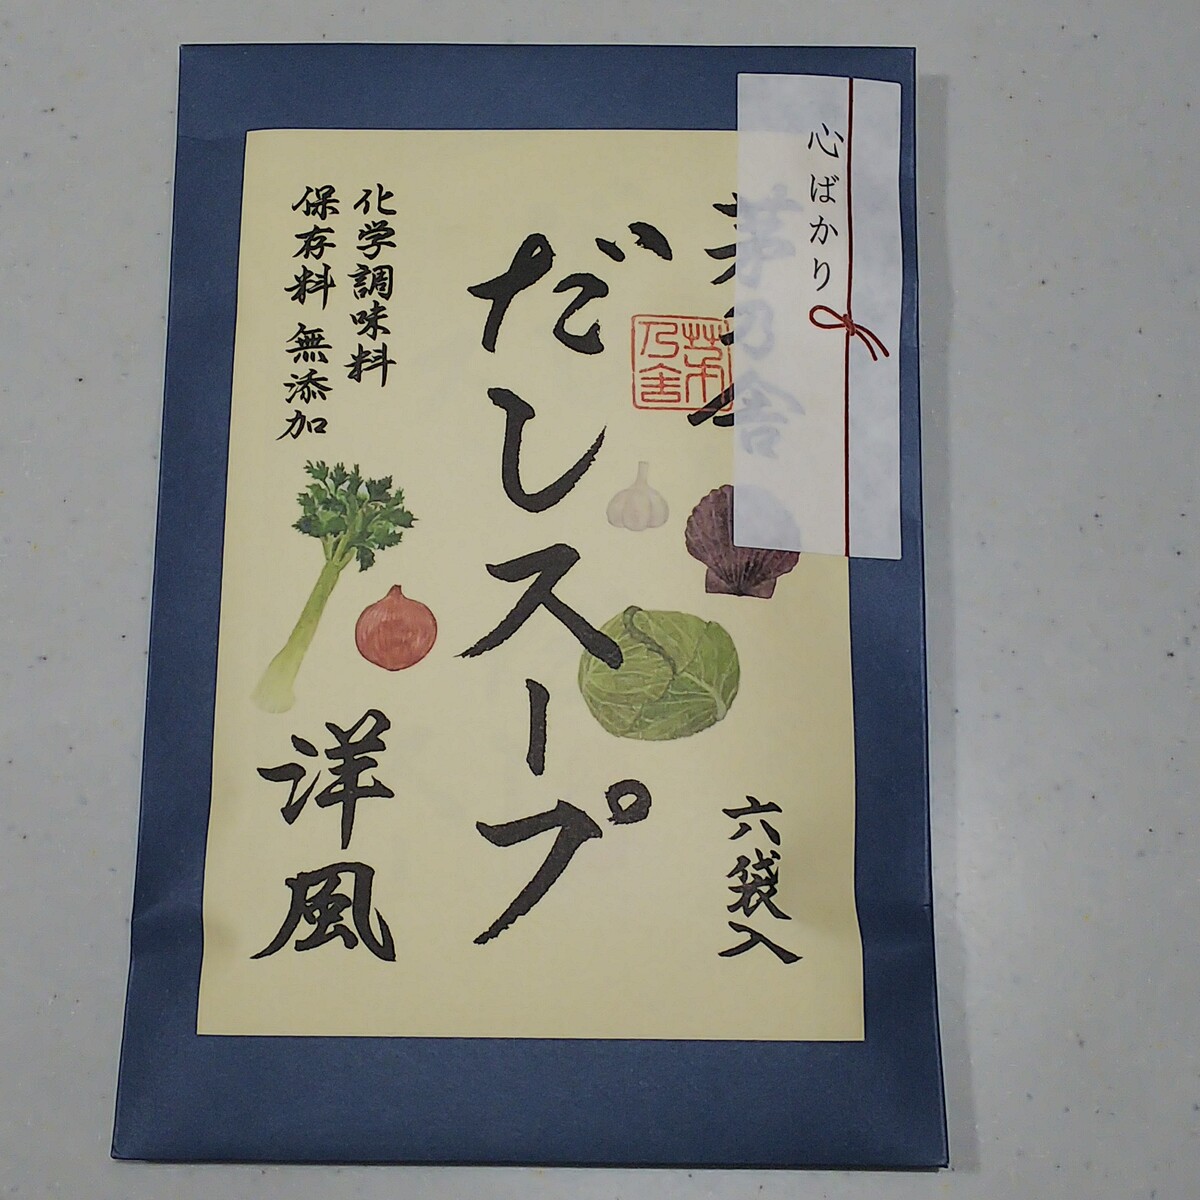 心ばかり
茅乃舎
茅乃舎
だしスープ
洋風
化学調味料
保存料 無添加
六袋入